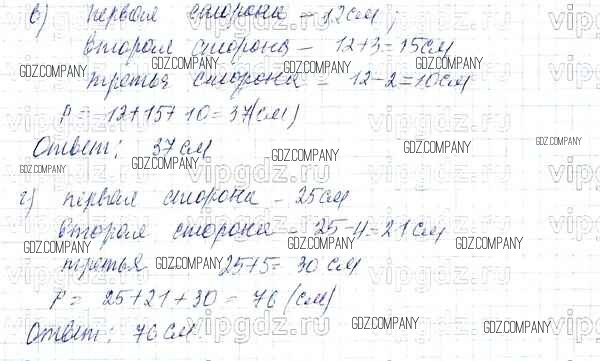 в) первая сторона - 12см;
вторая сторона - 12+3=15см
третья сторона = 12-2=10см
P = 12+15+10=37(см)
Ответ: 37см
г) первая сторона - 25см
вторая сторона - 25-4=21см
третья 25+5= 30см
P = 25+21+30 = 76 (см)
Ответ: 76см.